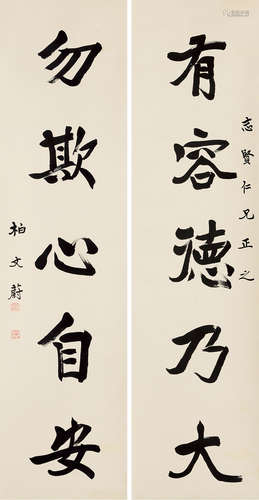 志賢仁兄正之
有容德乃大
勿欺心自安
柏文蔚